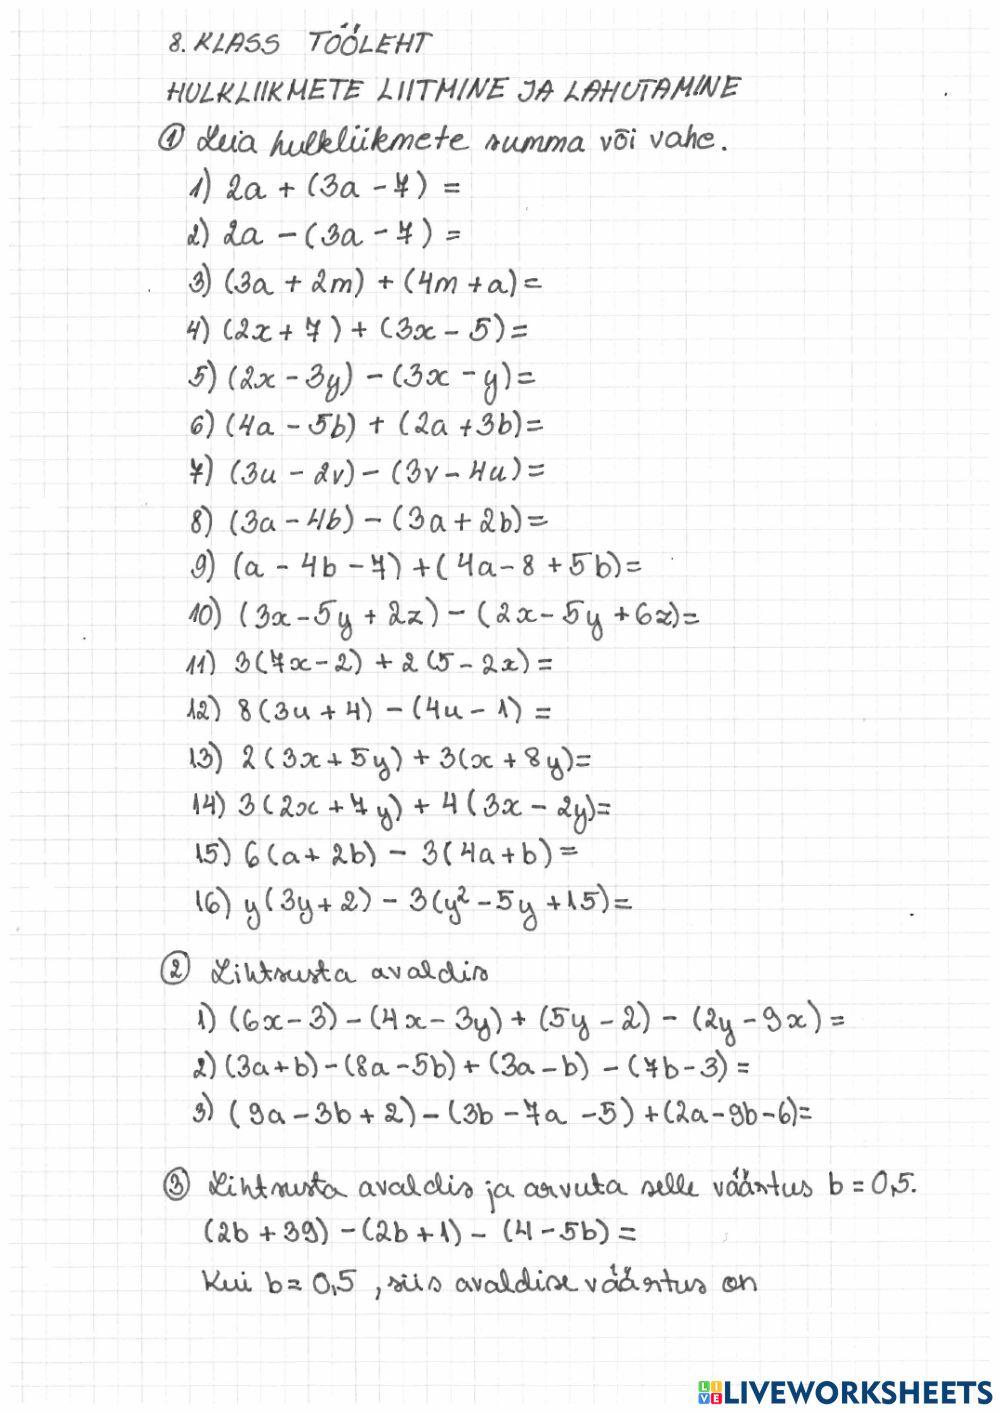 8. KLASS TÖÖLEHT
HULKLIIKMETE LIITMINE JA LAHUTAMINE
① Leia hulkliikmete summa või vahe.
1) 2a + (3a - 7) =
2) 2a - (3a - 7) =
3) (3a + 2m) + (4m + a) =
4) (2x + 7) + (3x - 5) =
5) (2x - 3y) - (3x - y) =
6) (4a - 5b) + (2a + 3b) =
7) (3u - 2v) - (3v - 4u) =
8) (3a - 4b) - (3a + 2b) =
9) (a - 4b - 7) + (4a - 8 + 5b) =
10) (3x - 5y + 2z) - (2x - 5y + 6z) =
11) 3(7x - 2) + 2(5 - 2x) =
12) 8(3u + 4) - (4u - 1) =
13) 2(3x + 5y) + 3(x + 8y) =
14) 3(2x + 7y) + 4(3x - 2y) =
15) 6(a + 2b) - 3(4a + b) =
16) y(3y + 2) - 3(y² - 5y + 15) =
② Lihtsusta avaldis
1) (6x - 3) - (4x - 3y) + (5y - 2) - (2y - 9x) =
2) (3a + b) - (8a - 5b) + (3a - b) - (7b - 3) =
3) (9a - 3b + 2) - (3b - 7a - 5) + (2a - 9b - 6) =
③ Lihtsusta avaldis ja arvuta selle väärtus b = 0,5.
(2b + 39) - (2b + 1) - (4 - 5b) =
Kui b = 0,5, siis avaldise väärtus on
LIVEWORKSHEETS